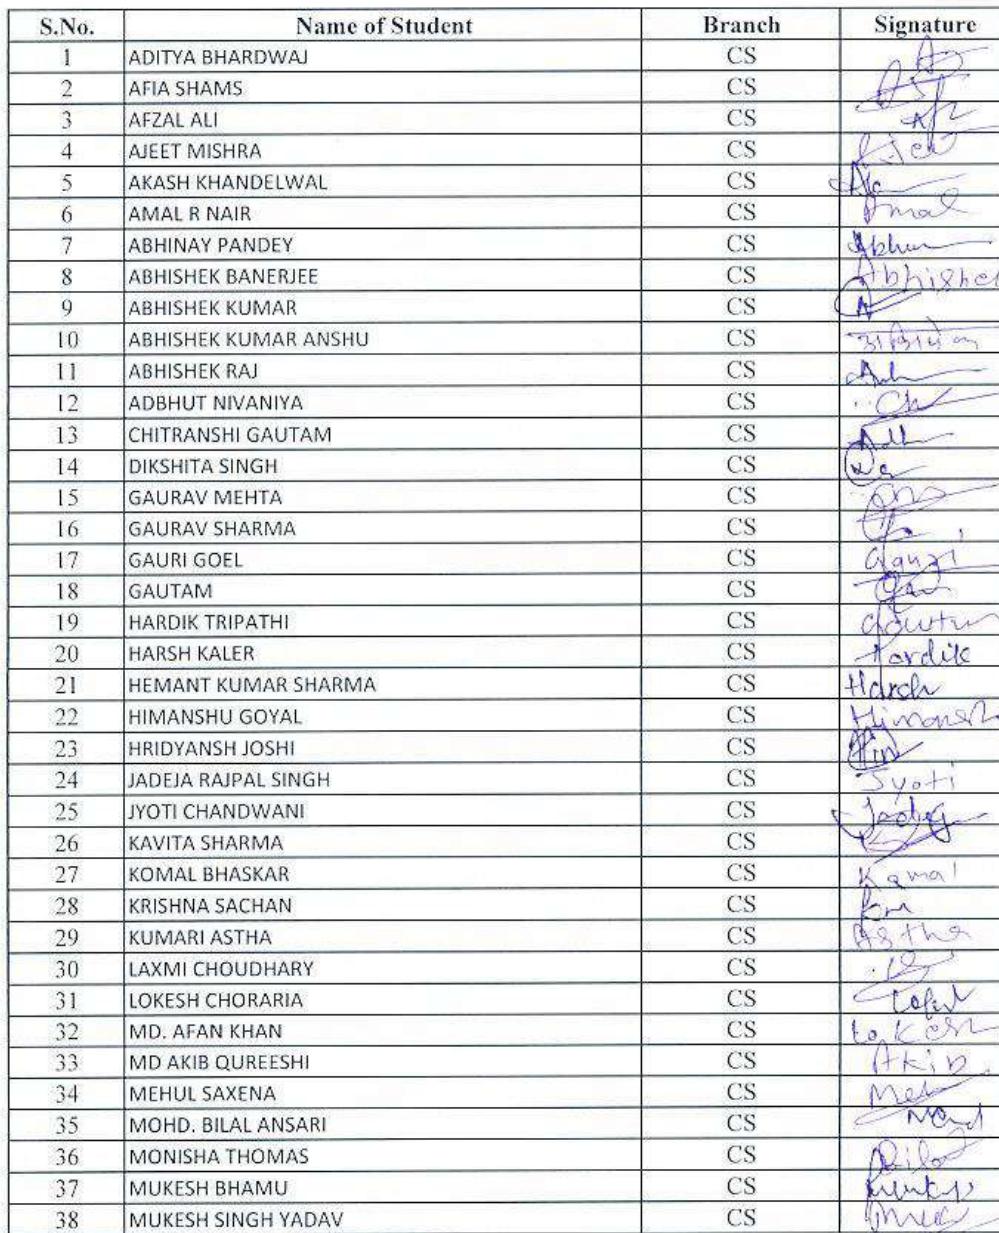 S.No. Name of Student Branch Signature
1 ADITYA BHARDWAJ CS
2 AFIA SHAMS CS
3 AFZAL ALI CS
4 AJEET MISHRA CS
5 AKASH KHANDELWAL CS
6 AMAL R NAIR CS Amal
7 ABHINAY PANDEY CS
8 ABHISHEK BANERJEE CS Abhishek
9 ABHISHEK KUMAR CS
10 ABHISHEK KUMAR ANSHU CS
11 ABHISHEK RAJ CS
12 ADBHUT NIVANIYA CS
13 CHITRANSHI GAUTAM CS
14 DIKSHITA SINGH CS
15 GAURAV MEHTA CS
16 GAURAV SHARMA CS
17 GAURI GOEL CS
18 GAUTAM CS
19 HARDIK TRIPATHI CS
20 HARSH KALER CS Hardik
21 HEMANT KUMAR SHARMA CS Harsh
22 HIMANSHU GOYAL CS
23 HRIDYANSH JOSHI CS
24 JADEJA RAJPAL SINGH CS Jyoti
25 JYOTI CHANDWANI CS
26 KAVITA SHARMA CS
27 KOMAL BHASKAR CS Komal
28 KRISHNA SACHAN CS
29 KUMARI ASTHA CS Astha
30 LAXMI CHOUDHARY CS
31 LOKESH CHORARIA CS
32 MD. AFAN KHAN CS Lokesh
33 MD AKIB QUREESHI CS Akib
34 MEHUL SAXENA CS
35 MOHD. BILAL ANSARI CS
36 MONISHA THOMAS CS
37 MUKESH BHAMU CS
38 MUKESH SINGH YADAV CS